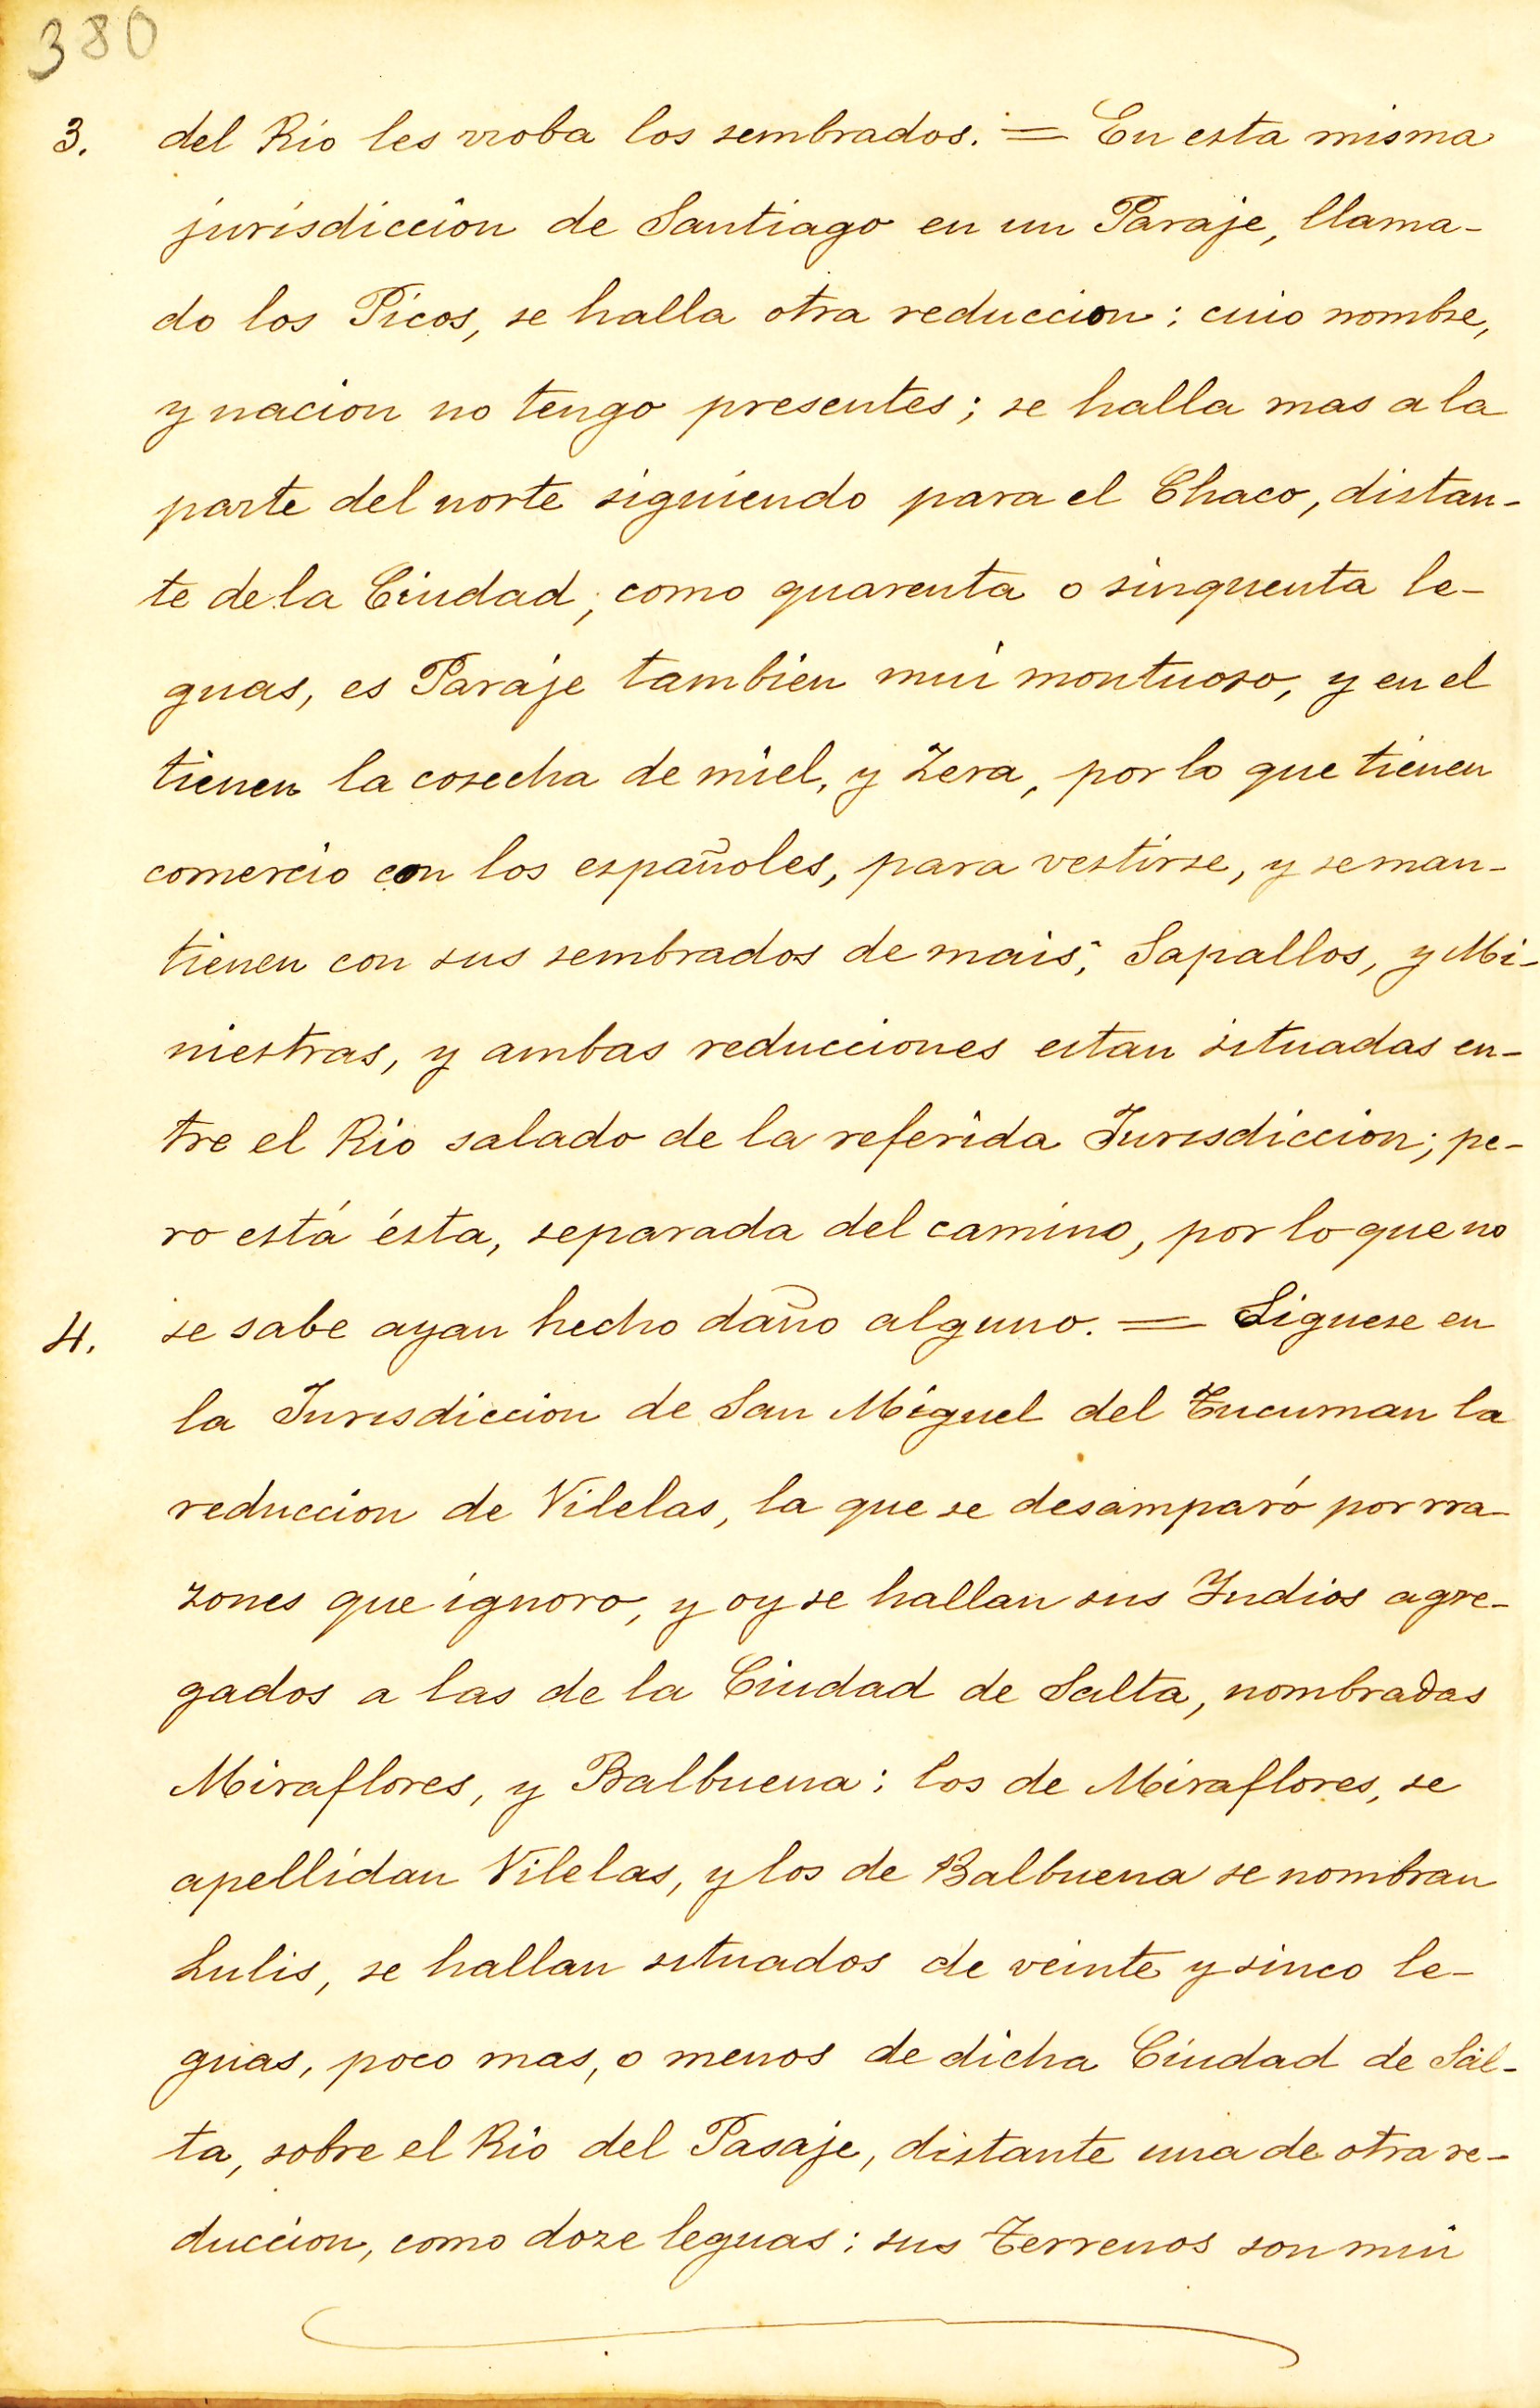 380
3. del Rio les rroba los sembrados. = En esta misma
jurisdiccion de Santiago en un Paraje, llama-
do los Picos, se halla otra reduccion: cuio nombre,
y nacion no tengo presentes; se halla mas a la
parte del norte siguiendo para el Chaco, distan-
te de la Ciudad, como quarenta o sinquenta le-
guas, es Paraje tambien mui montuoso, y en el
tienen la cosecha de miel, y Zera, por lo que tienen
comercio con los españoles, para vestirse, y se man-
tienen con sus sembrados de mais, Sapallos, y Mi-
niestras, y ambas reducciones estan situadas en-
tre el Rio salado de la referida Jurisdiccion; pe-
ro está ésta, separada del camino, por lo que no
4. se sabe ayan hecho daño alguno. = Siguese en
la Jurisdiccion de San Miguel del Tucuman la
reduccion de Vilelas, la que se desamparó por rra-
zones que ignoro, y oy se hallan sus Indios agre-
gados a las de la Ciudad de Salta, nombradas
Miraflores, y Balbuena: los de Miraflores, se
apellidan Vilelas, y los de Balbuena se nombran
Lulis, se hallan situados de veinte y sinco le-
guas, poco mas, o menos de dicha Ciudad de Sal-
ta, sobre el Rio del Pasaje, distante una de otra re-
duccion, como doze leguas: sus Terrenos son mui